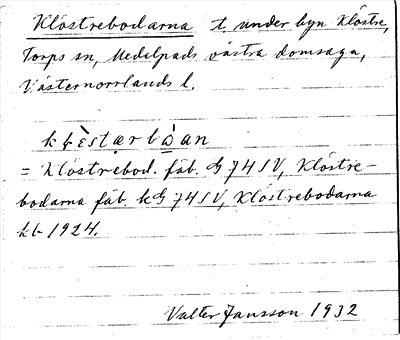 Klöstrebodarna t. under byn Klöstre,
Torps sn, Medelpads västra domsaga,
Västernorrlands l.
= Klöstrebod. fäb. G 74 SV, Klöstre-
bodarna fäb. kG 74 SV, Klöstrebodarna
kb 1924.
Valter Jansson 1932